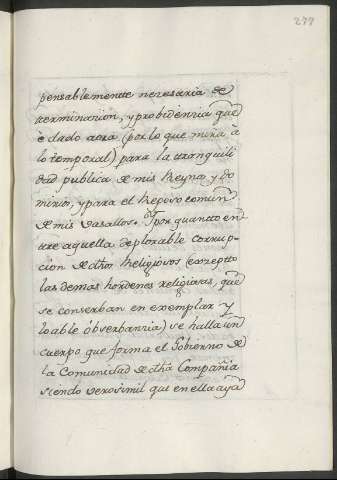 277
pensablemente necesaria de
terminazion, y probidenzia que
e dado aora (por lo que mira à
lo temporal) para la tranquili
dad publica de mis Reynos y Do
minios, y para el Reposo comun
de mis vasallos. Y por quantto en
tre aquella deplorable corrup-
cion de dhos Religiosos (exzeptto
las demas hordenes religiosas, que
se conserban en exemplar y
loable obserbanzia) se halla un
cuerpo que forma el Gobierno de
la Comunidad de dha Compañia
siendo verosimil que en ella aya